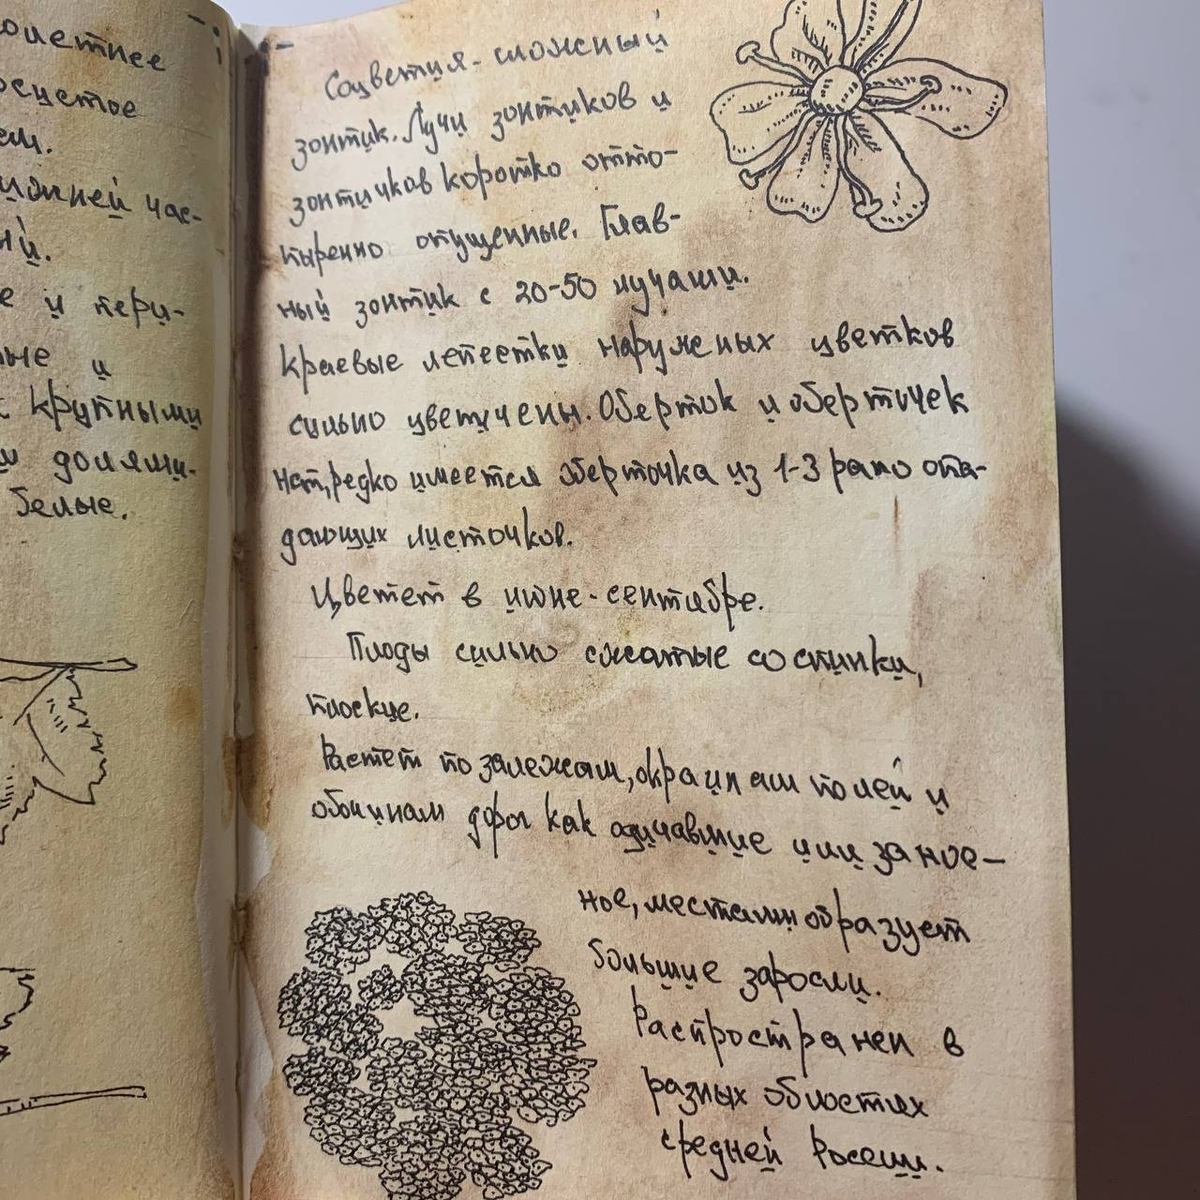 олетнее
рецстое
ем.
ижней час-
ый.
е и пери-
ные и
с крупными
и долями-
белые.
Соцветия - сложный
зонтик. Лучи зонтиков и
зонтичков коротко отто-
пыренно опущенные. Глав-
ный зонтик с 20-50 лучами.
Краевые лепестки наружных цветков
сильно цветичены. Оберток и оберточек
нет, редко имеется оберточка из 1-3 рано опа-
дающих листочков.
Цветет в июне - сентябре.
Плоды сильно сжатые со спинки,
плоские.
Растет по залежам, окраинам полей и
обочинам дорог как одичавшие или занос-
ное, местами образует
большие заросли.
Распространен в
разных областях
средней России.